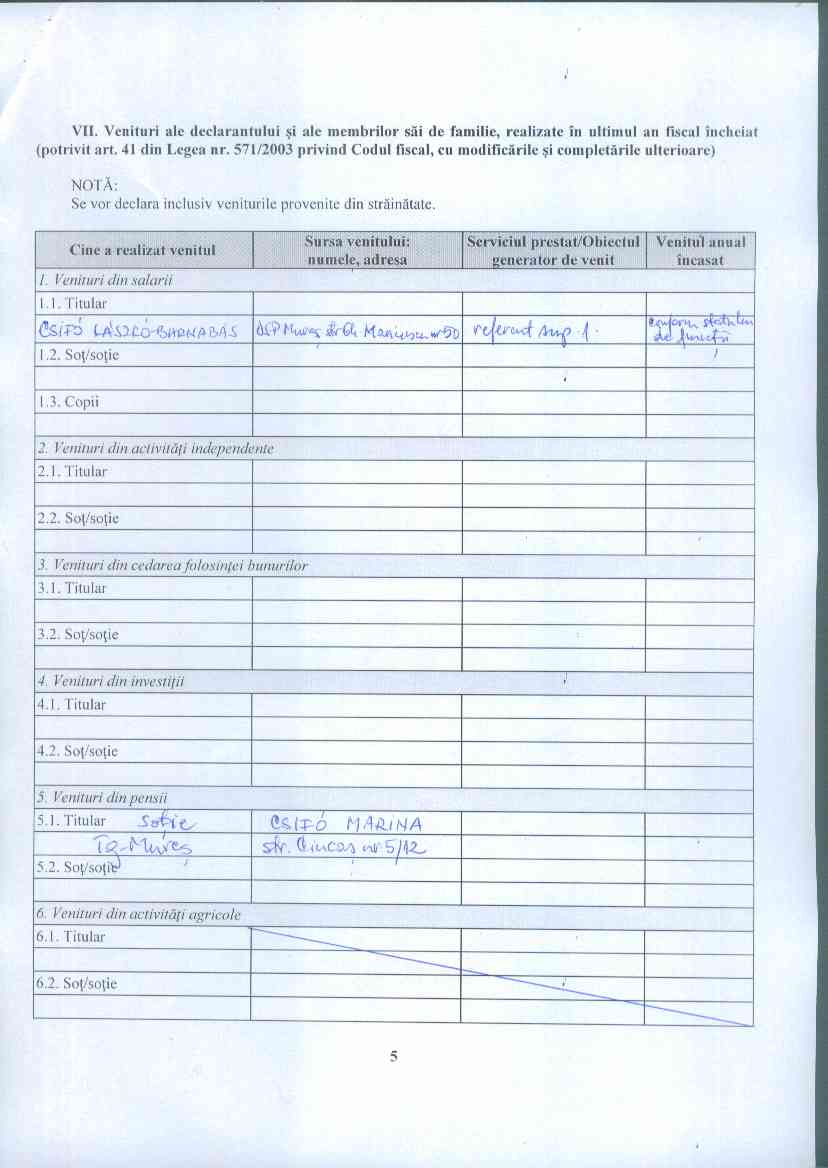 VII. Venituri ale declarantului și ale membrilor săi de familie, realizate în ultimul an fiscal încheiat
(potrivit art. 41 din Legea nr. 571/2003 privind Codul fiscal, cu modificările și completările ulterioare)
NOTĂ:
Se vor declara inclusiv veniturile provenite din străinătate.
Cine a realizat venitul Sursa venitului: numele, adresa Serviciul prestat/Obiectul generator de venit Venitul anual încasat
1. Venituri din salarii
1.1. Titular
CSIFÓ LÁSZLÓ-BARNABÁS DSP Mureș str Gh Marinescu nr 50 referent sup. 1. conform statului de funcții
1.2. Soț/soție
1.3. Copii
2. Venituri din activități independente
2.1. Titular
2.2. Soț/soție
3. Venituri din cedarea folosinței bunurilor
3.1. Titular
3.2. Soț/soție
4. Venituri din investiții
4.1. Titular
4.2. Soț/soție
5. Venituri din pensii
5.1. Titular soție CSIFÓ MARINA
Tg-Mureș str. Ciucaș nr 5/12
5.2. Soț/soție
6. Venituri din activități agricole
6.1. Titular
6.2. Soț/soție
5